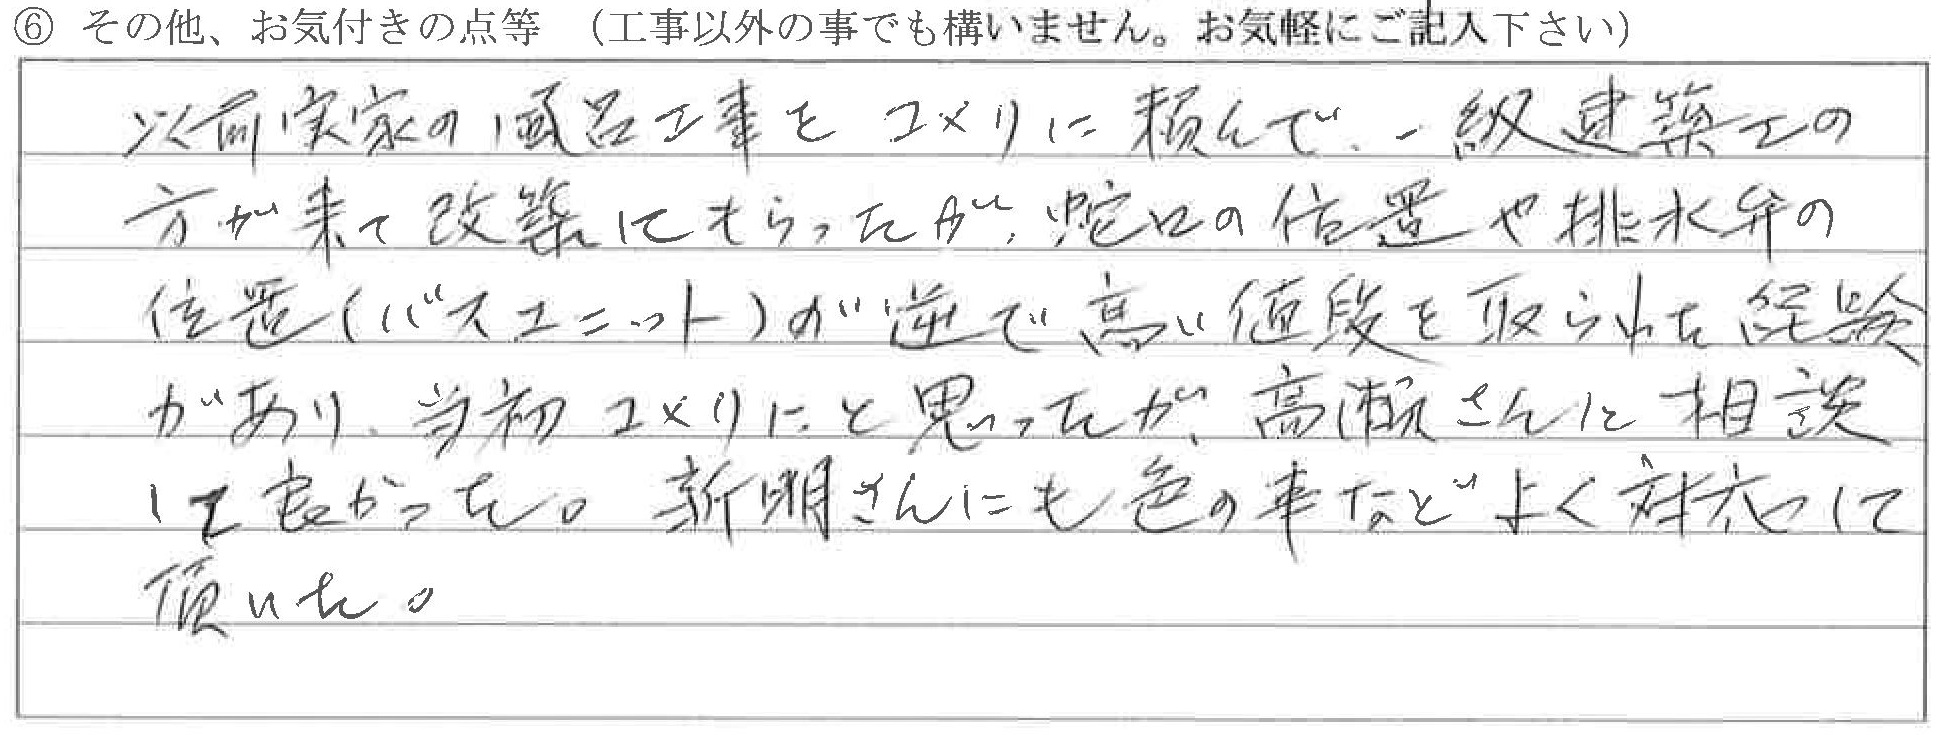 ⑥ その他、お気付きの点等 （工事以外の事でも構いません。お気軽にご記入下さい）
以前実家の風呂工事を コメリに 頼んで、一級建築士の
方が来て改築してもらったが、蛇口の位置や排水弁の
位置(バスユニット)が逆で高い値段を取られた経験
があり、当初コメリにと思ったが、高瀬さんに相談
して良かった。新明さんにも色の事などよく対応して
頂いた。